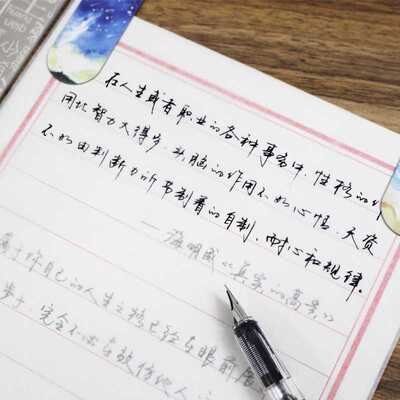 在人生或者职业的各种事务中，性格的作
用比智力大得多，头脑的作用不如心情，天资
不如由判断力所节制着的自制，耐心和规律。
——海明威《真实的高贵》
属于你自己的人生之路已经在眼前展
步于，完全不必去敬仰他人